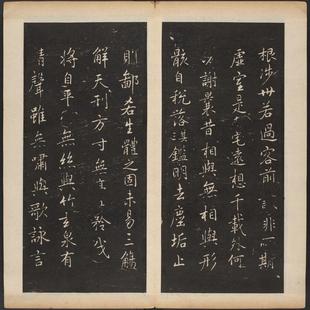 根涉世若過客前識非所期
虛室是我宅遠想千載外何
必謝曩昔相與無相與形
骸自稅落鑑明去塵垢止
則鄙吝生體之固未易三觴
解天刑方寸無主矜伐
將自平雖無絲與竹玄泉有
清聲雖無嘯與歌詠言